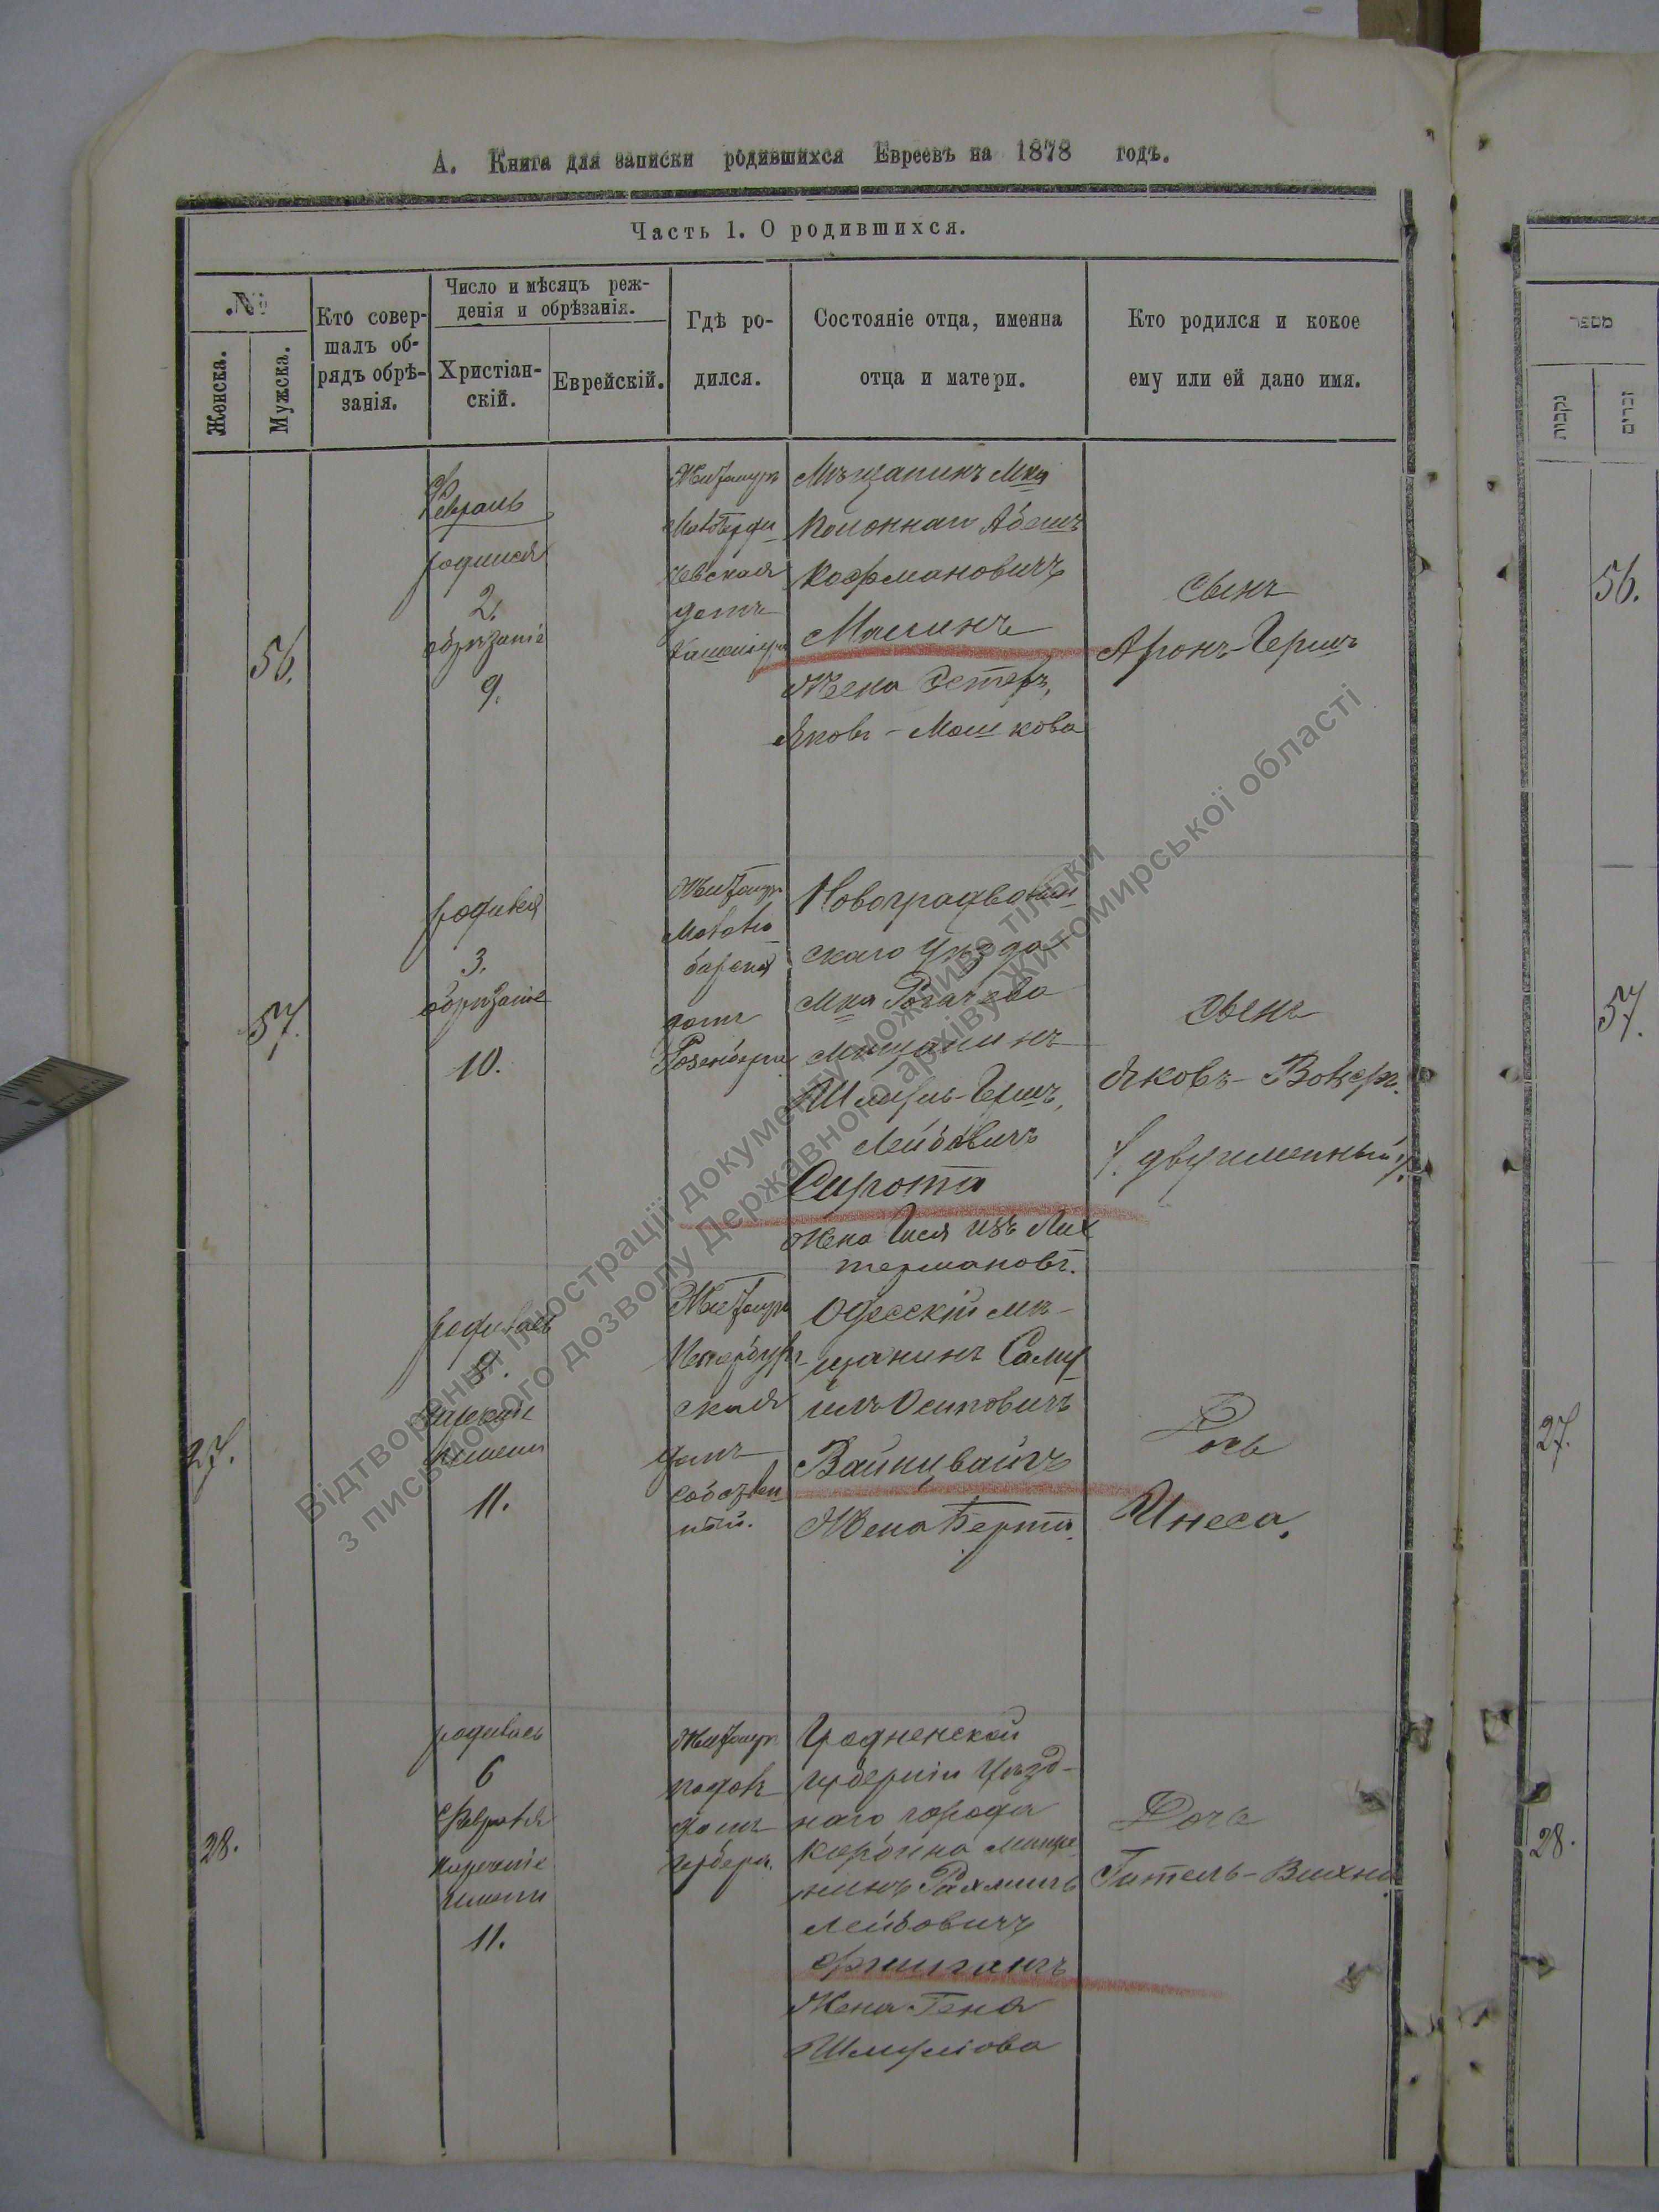 А. Книга для записки родившихся Евреевъ на 1878 годъ.
Часть 1. О родившихся.
№
Женска.
Мужска.
Кто совер-
шалъ об-
рядъ обрѣ-
занія.
Число и мѣсяцъ реж-
денія и обрѣзанія.
Христіан-
скій.
Еврейскій.
Гдѣ ро-
дился.
Состояніе отца, именна
отца и матери.
Кто родился и кокое
ему или ей дано имя.
56.
Февраль
родился
2.
обрѣзаніе
9.
Житомиръ
домъ
Мѣщанинъ Мка
Полоннаго
Кофмановичъ
Жена Эстеръ,
Яковъ-Мошкова
Сынъ
Аронъ-Гершъ
57.
родился
3.
обрѣзаніе
10.
Житомиръ
домъ
Розенберга
Новоградволын
скаго Уѣзда
Мка Рогачева
мѣщанинъ
Гершъ,
Лейбовичъ
Сирота
Жена Гися изъ Лих
термановъ.
Сынъ
Яковъ-Вольфъ.
(двуименный).
27.
родилась
нареченіе
имени
11.
Житомиръ
Петербург
ская
домъ
собствен
ный.
Одесскій мѣ-
щанинъ Саму
илъ Осиповичъ
Вайнцвайгъ
Жена Берта.
Дочь
Инеса.
28.
родилась
6
Февраля
нареченіе
имени
11.
Житомиръ
домъ
Гродненской
губерніи Уѣзд-
наго города
Кобрина мѣща
нинъ
Лейбовичъ
Жена Геня
Шмулова
Дочь
Гитель-Вихна
מספר
נקבות
זכרים
56.
57.
27.
28.
Відтворення ілюстрації документу можливо тільки
з письмового дозволу Державного архіву Житомирської області